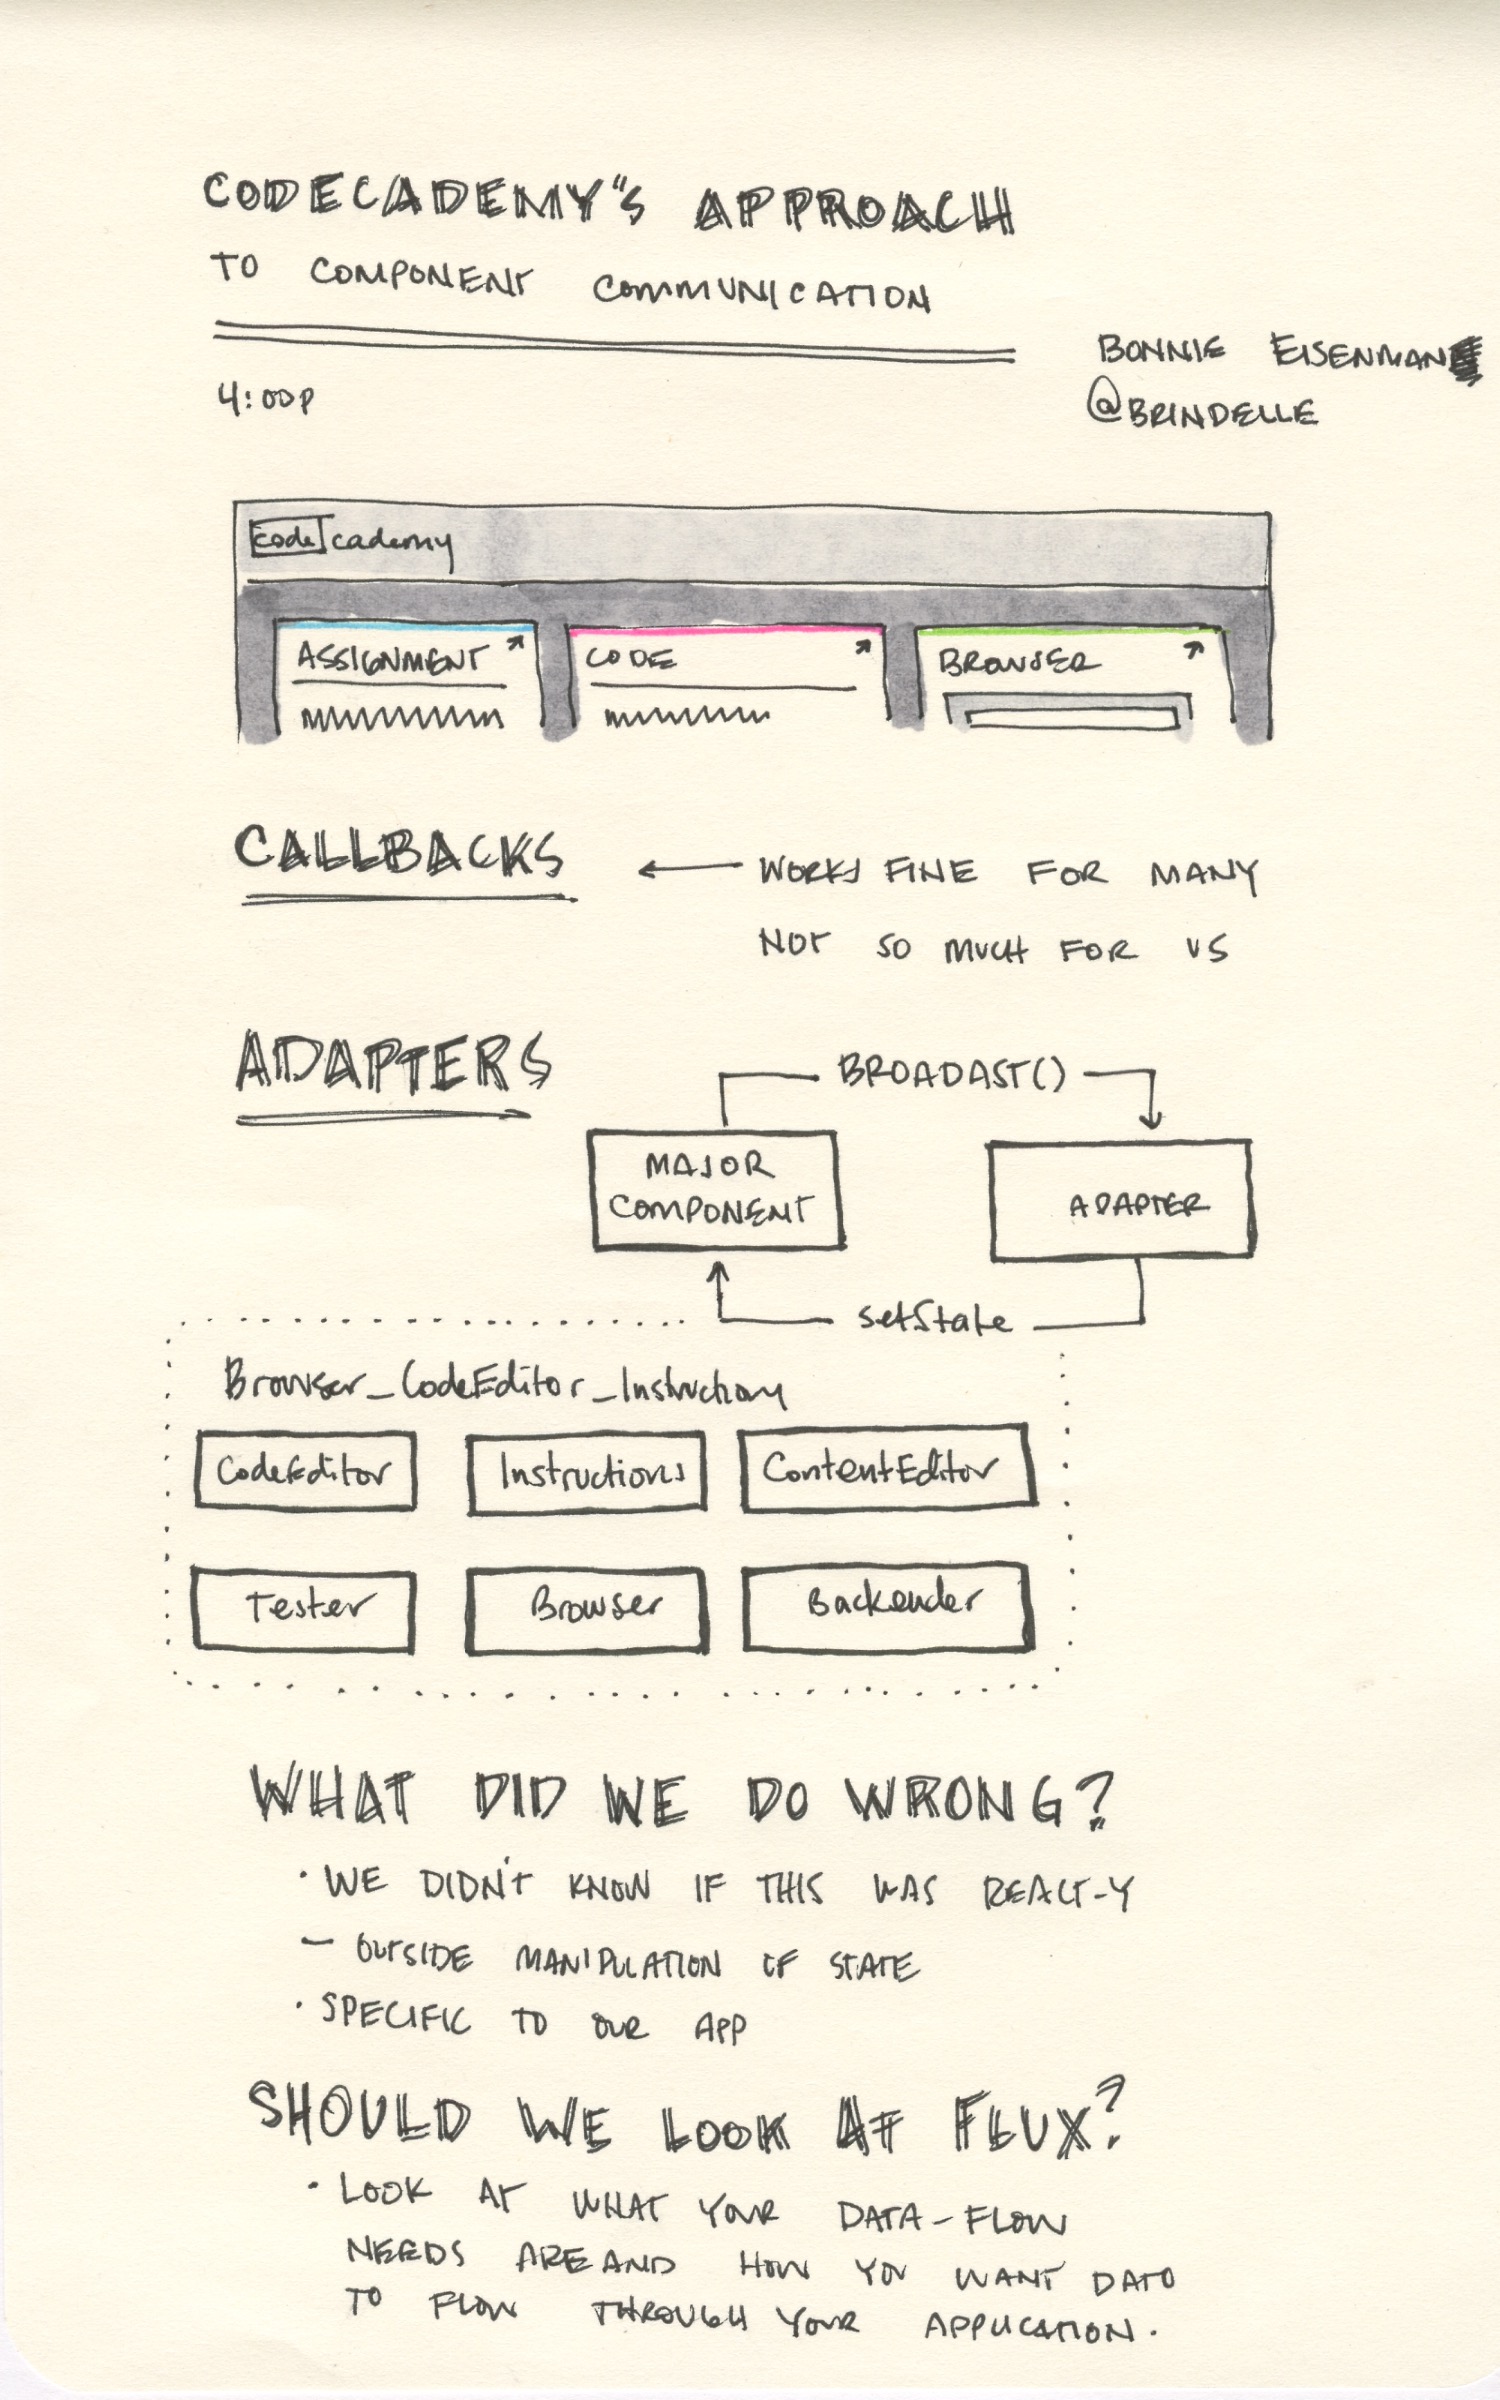 CODECADEMY'S APPROACH
TO COMPONENT COMMUNICATION
BONNIE EISENMAN
4:00P
@BRINDELLE
codecademy
ASSIGNMENT
CODE
BROWSER
CALLBACKS
WORKS FINE FOR MANY
NOT SO MUCH FOR US
ADAPTERS
BROADAST()
MAJOR
COMPONENT
ADAPTER
setState
Browser_CodeEditor_Instructions
CodeEditor
Instructions
ContentEditor
Tester
Browser
Backender
WHAT DID WE DO WRONG?
· WE DIDN'T KNOW IF THIS WAS REACT-Y
— OUTSIDE MANIPULATION OF STATE
· SPECIFIC TO OUR APP
SHOULD WE LOOK AT FLUX?
· LOOK AT WHAT YOUR DATA-FLOW
NEEDS ARE AND HOW YOU WANT DATA
TO FLOW THROUGH YOUR APPLICATION.